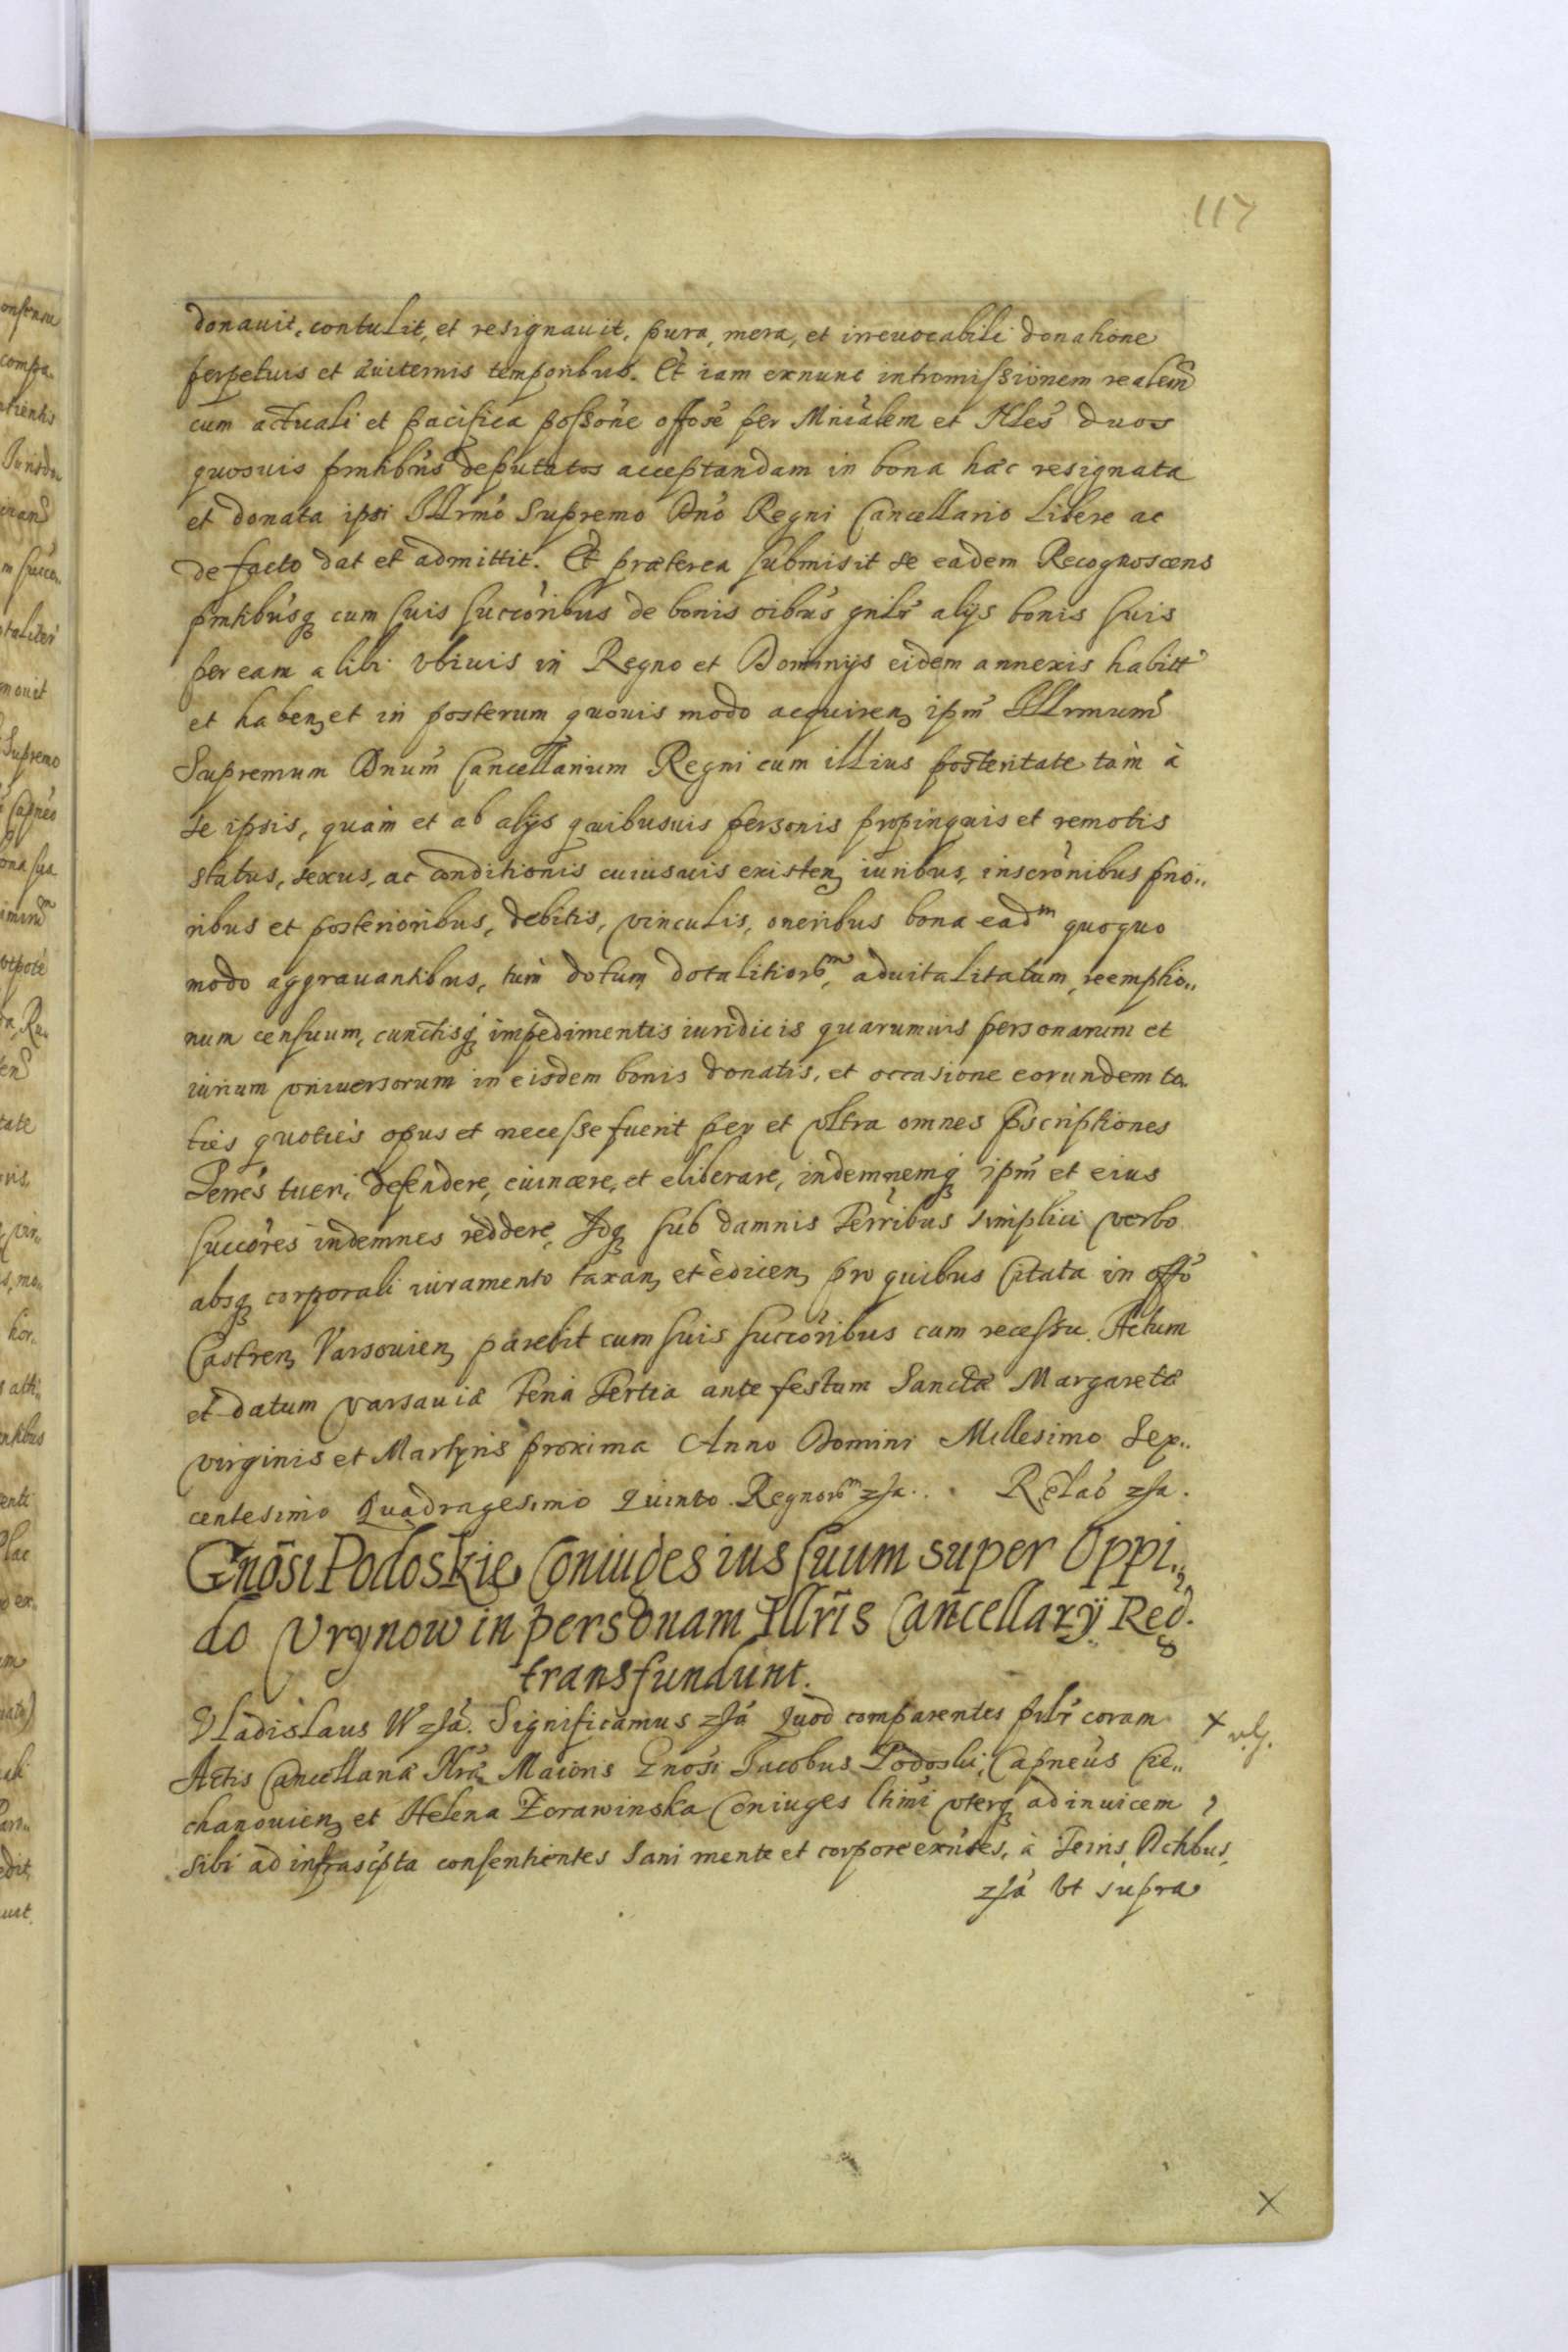 117
donauit, contulit, et resignauit, pura, mera, et irreuocabili donatione
perpetuis et æuiternis temporibus. Et iam exnunc intromissionem realem
cum actuali et pacifica possõne offose per Mnialem et Nles duos
quosuis pntibus deputatos acceptandam in bona hæc resignata
et donata ipsi Illrmo Supremo Dno Regni Cancellario libere ac
de facto dat et admittit. Et præterea submisit se eadem Recognoscens
pntibusq cum suis succoribus de bonis oibus gnlr alijs bonis suis
per eam alibi vbiuis in Regno et Dominijs eidem annexis habitt
et haben, et in posterum quouis modo acquiren, ipm Illrmum
Supremum Dnum Cancellarium Regni cum illius posteritate tàm à
se ipsis, quàm et ab alijs quibusuis personis propinquis et remotis
status, sexus, ac conditionis cuiusuis existen, iuribus, inscrònibus prio..
ribus et posterioribus, debitis, vinculis, oneribus bona eadm quoquo
modo aggrauantibus, tùm dotum dotalitiorm, aduitalitatum, reemptio..
num censuum, cunctisq impedimentis iuridicis quarumuis personarum et
iurium vniuersorum in eisdem bonis donatis, et occasione eorundem to..
ties quoties opus et necesse fuerit per et vltra omnes pscriptiones
Terres tueri, defendere, euincere, et eliberare, indemnemq ipm et eius
succores indemnes reddere, Idq sub damnis Terribus simplici verbo
absq corporali iuramento taxan, et edicen, pro quibus Citata in offo
Castren, Varsouien, parebit cum suis succoribus cum recessu. Actum
et datum varsauiæ Feria Tertia ante festum Sanctæ Margaretæ
virginis et Martyris proxima Anno Domini Millesimo Sex..
centesimo Quadragesimo Quinto. Regnorm zsa.. Relaõ zsa.
Gnosi Podoskie Coniuges ius suum super Oppi..
do Vrynow in personam Illris Cancellarij Reg.
transfundunt.
Vladislaus IV zsa. Significamus zsa Quod comparentes pslr coram
Actis Cancellariæ Nræ Maioris Gnosi Jacobus Podoski, Capneus Cie..
chanouien, et Helena Zorawinska Coniuges ltimi vterq ad inuicem
sibi ad infrascpta consentientes sani mente et corpore exntes, à Terris Actibus,
zsa vt supra
X
X